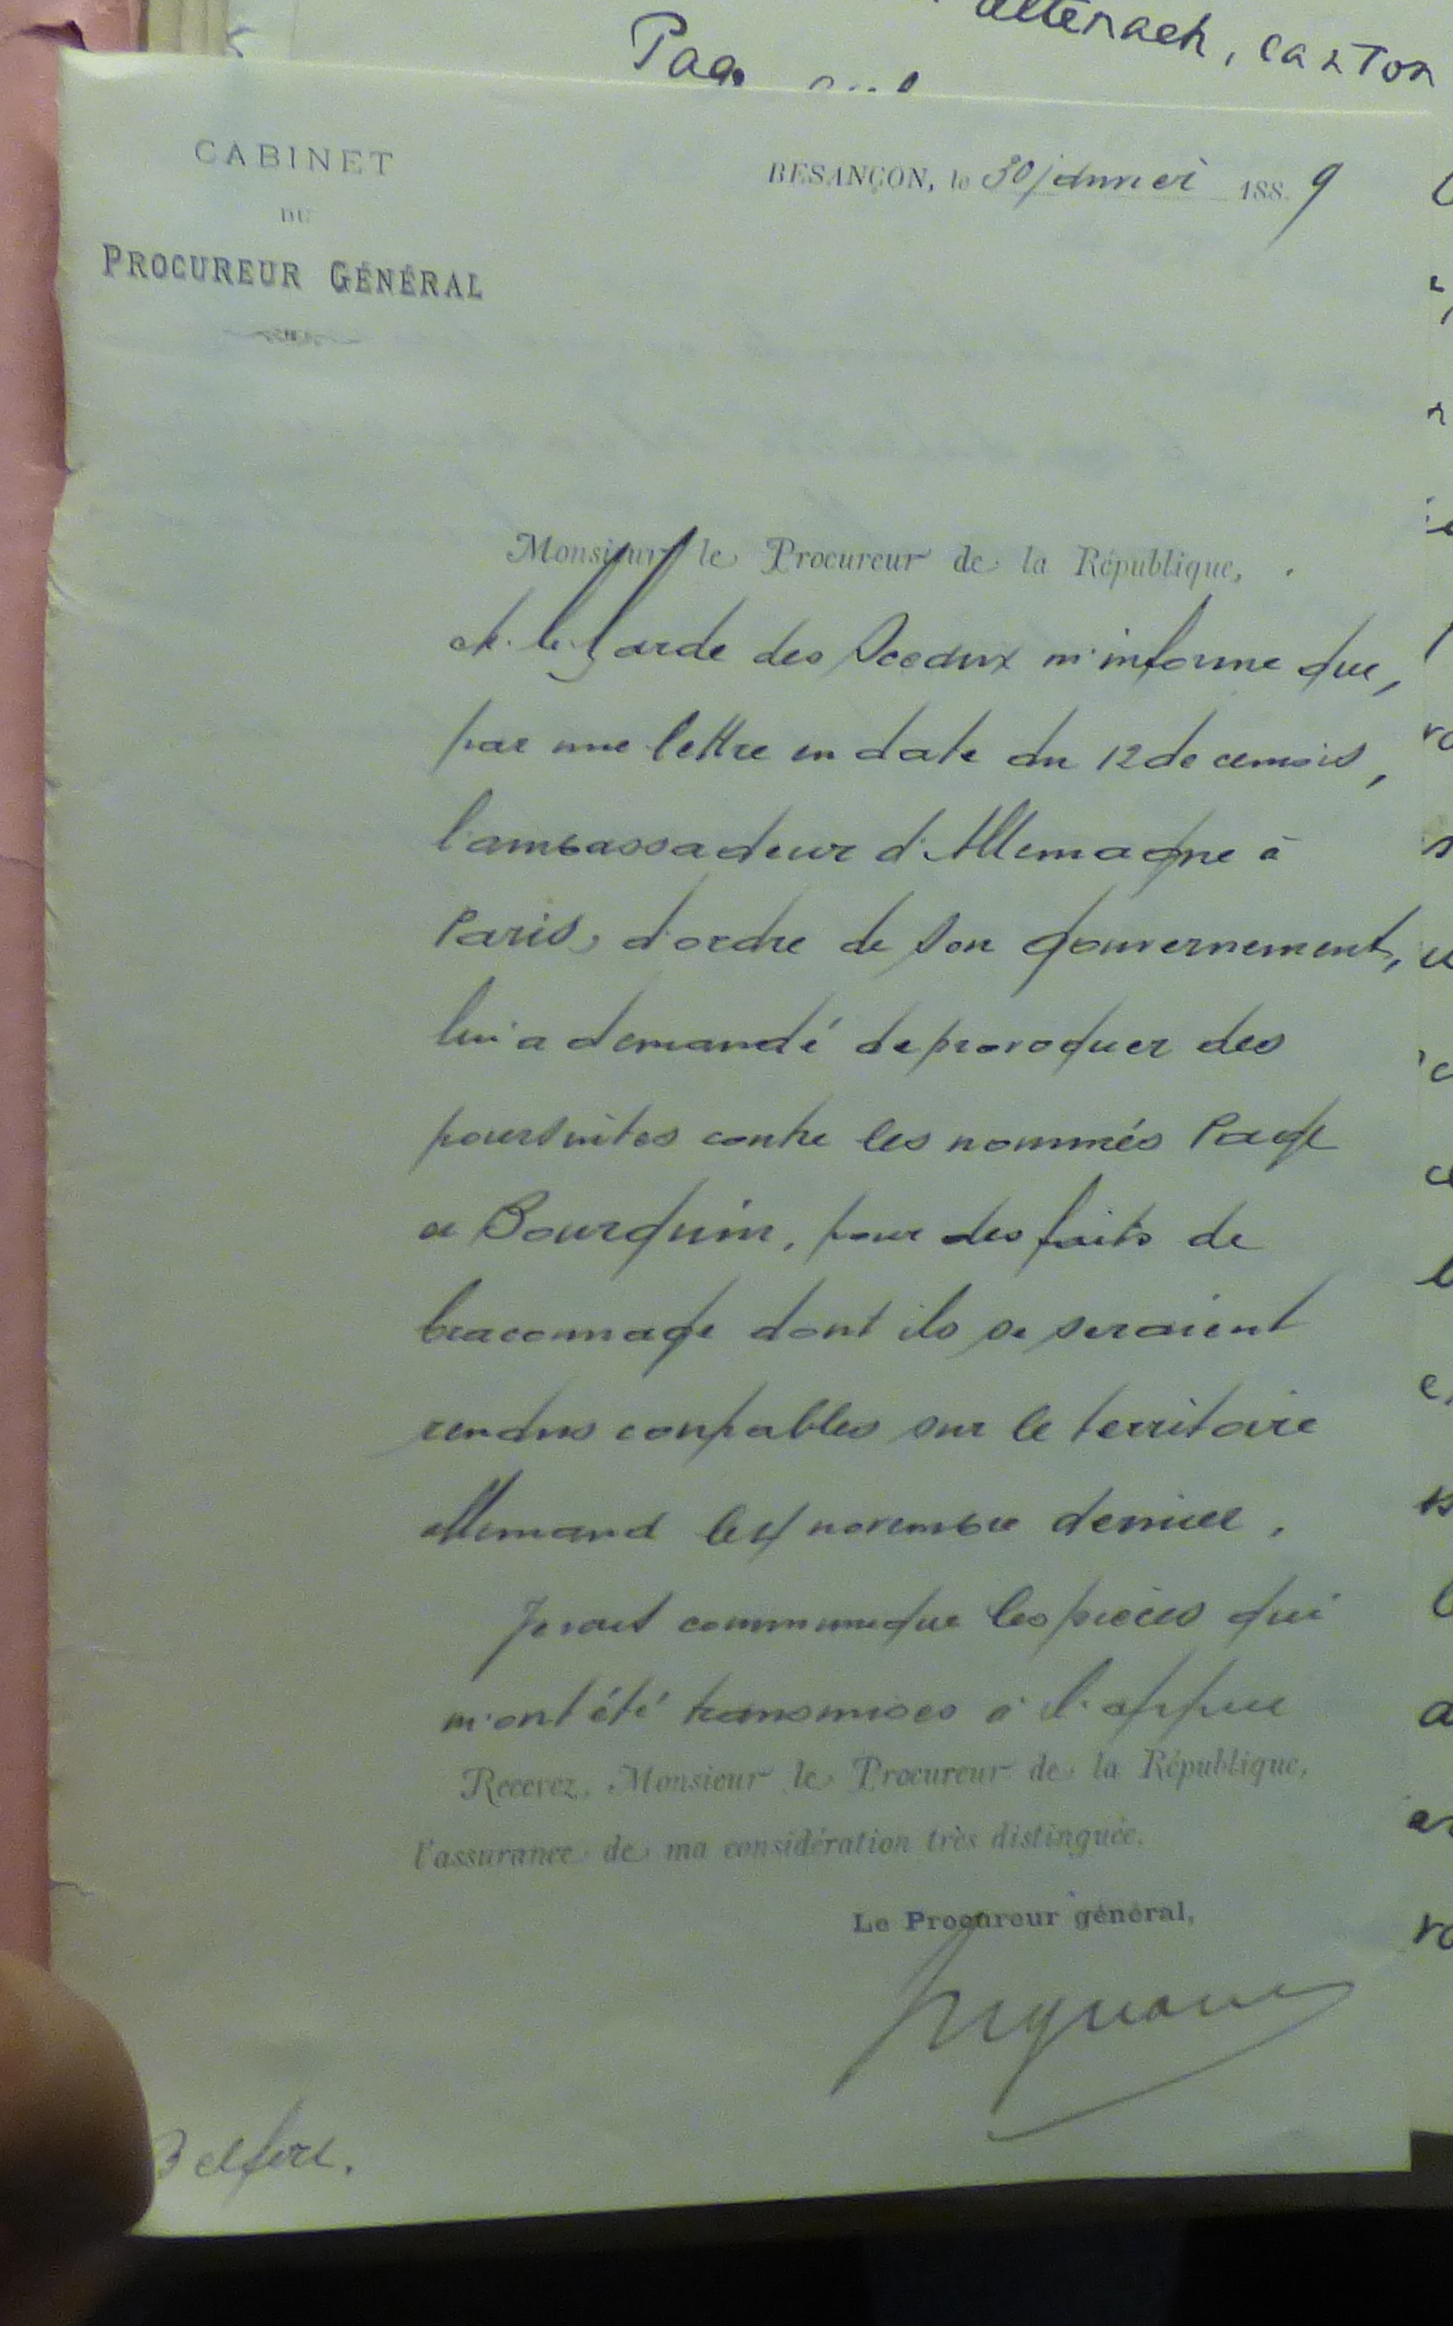 altenach, canton
Page
CABINET
DU
PROCUREUR GÉNÉRAL
BESANÇON, le 30 janvier 1889
Monsieur le Procureur de la République,
M. le Garde des Sceaux m'informe que,
par une lettre en date du 12 de ce mois,
l'ambassadeur d'Allemagne à
Paris, d'ordre de son gouvernement,
lui a demandé de provoquer des
poursuites contre les nommés Page
et Bourquin, pour des faits de
braconnage dont ils se seraient
rendus coupables sur le territoire
allemand le 4 novembre dernier.
Je vous communique les pièces qui
m'ont été transmises à l'appui
Recevez, Monsieur le Procureur de la République,
l'assurance de ma considération très distinguée.
Le Procureur général,
Belfort.